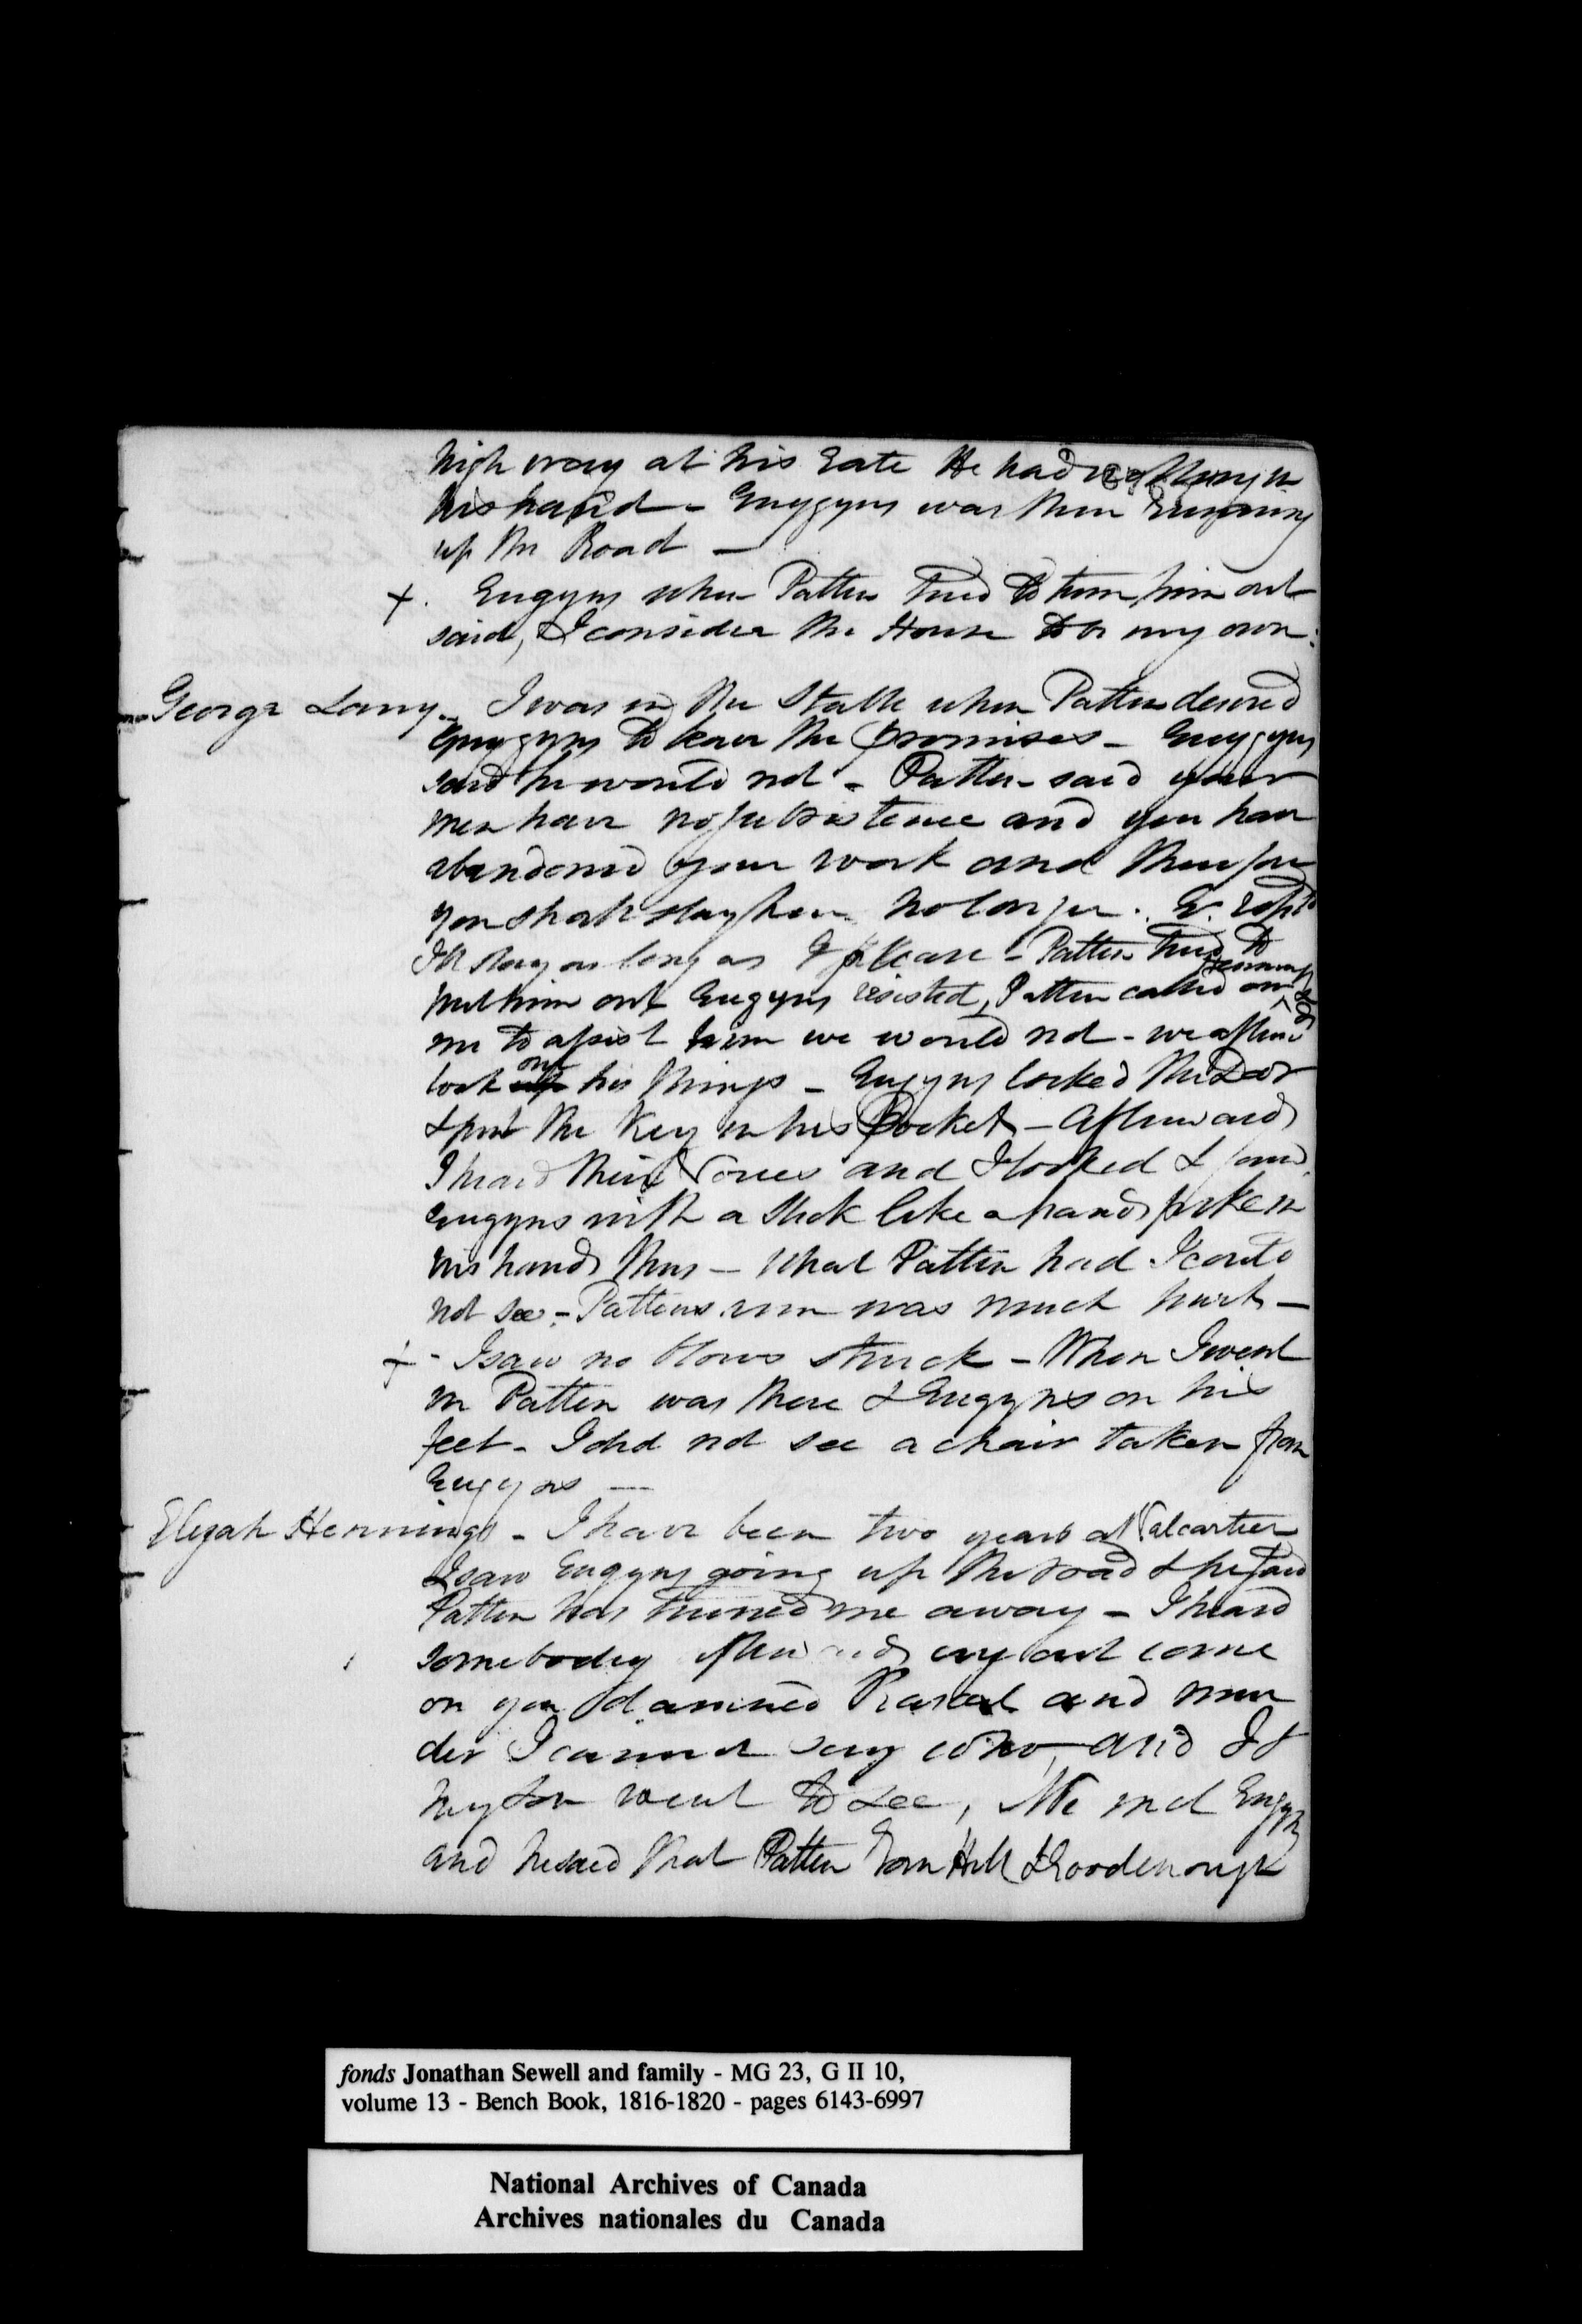 high way at his Gate He had nothing in
his hand - Guggyns was then running
up the Road —
+. Gugyns when Patten tried to turn him out
said, I consider the House to be my own.
George Lang - I was in the Stable when Patten desired
Guggyns to leave the premises - Guggyns
said he would not - Patten said your
men have no subsistence and you have
abandoned your work and therefore
you shall stay here no longer. G. repd
I'll stay as long as I please - Patten tried to
put him out Gugyns resisted, Patten called on Hemmings &
me to assist him we would not - we afterwds
took out his things - Gugyns locked the Door
& put the Key in his Pocket - Afterwards
I heard their Voices and I looked & found
Gugyns with a stick like a handspike in
his hands thus — What Patten had I could
not see - Pattens arm was much hurt —
+ - I saw no blows struck - When I went
in Patten was there & Gugyns on his
feet - I did not see a chair taken from
Gugyns —
Elizah Hemmings - I have been two years at Valcartier
I saw Gugyns going up the road & he said
Patten has turned me away - I heard
somebody afterwards cry out come
on you damned Rascal and mur
der I cannot say who, and I &
my son went to see, We met Gugyns
and he said that Patten Tom Hill & Goodenough
fonds Jonathan Sewell and family - MG 23, G II 10,
volume 13 - Bench Book, 1816-1820 - pages 6143-6997
National Archives of Canada
Archives nationales du Canada